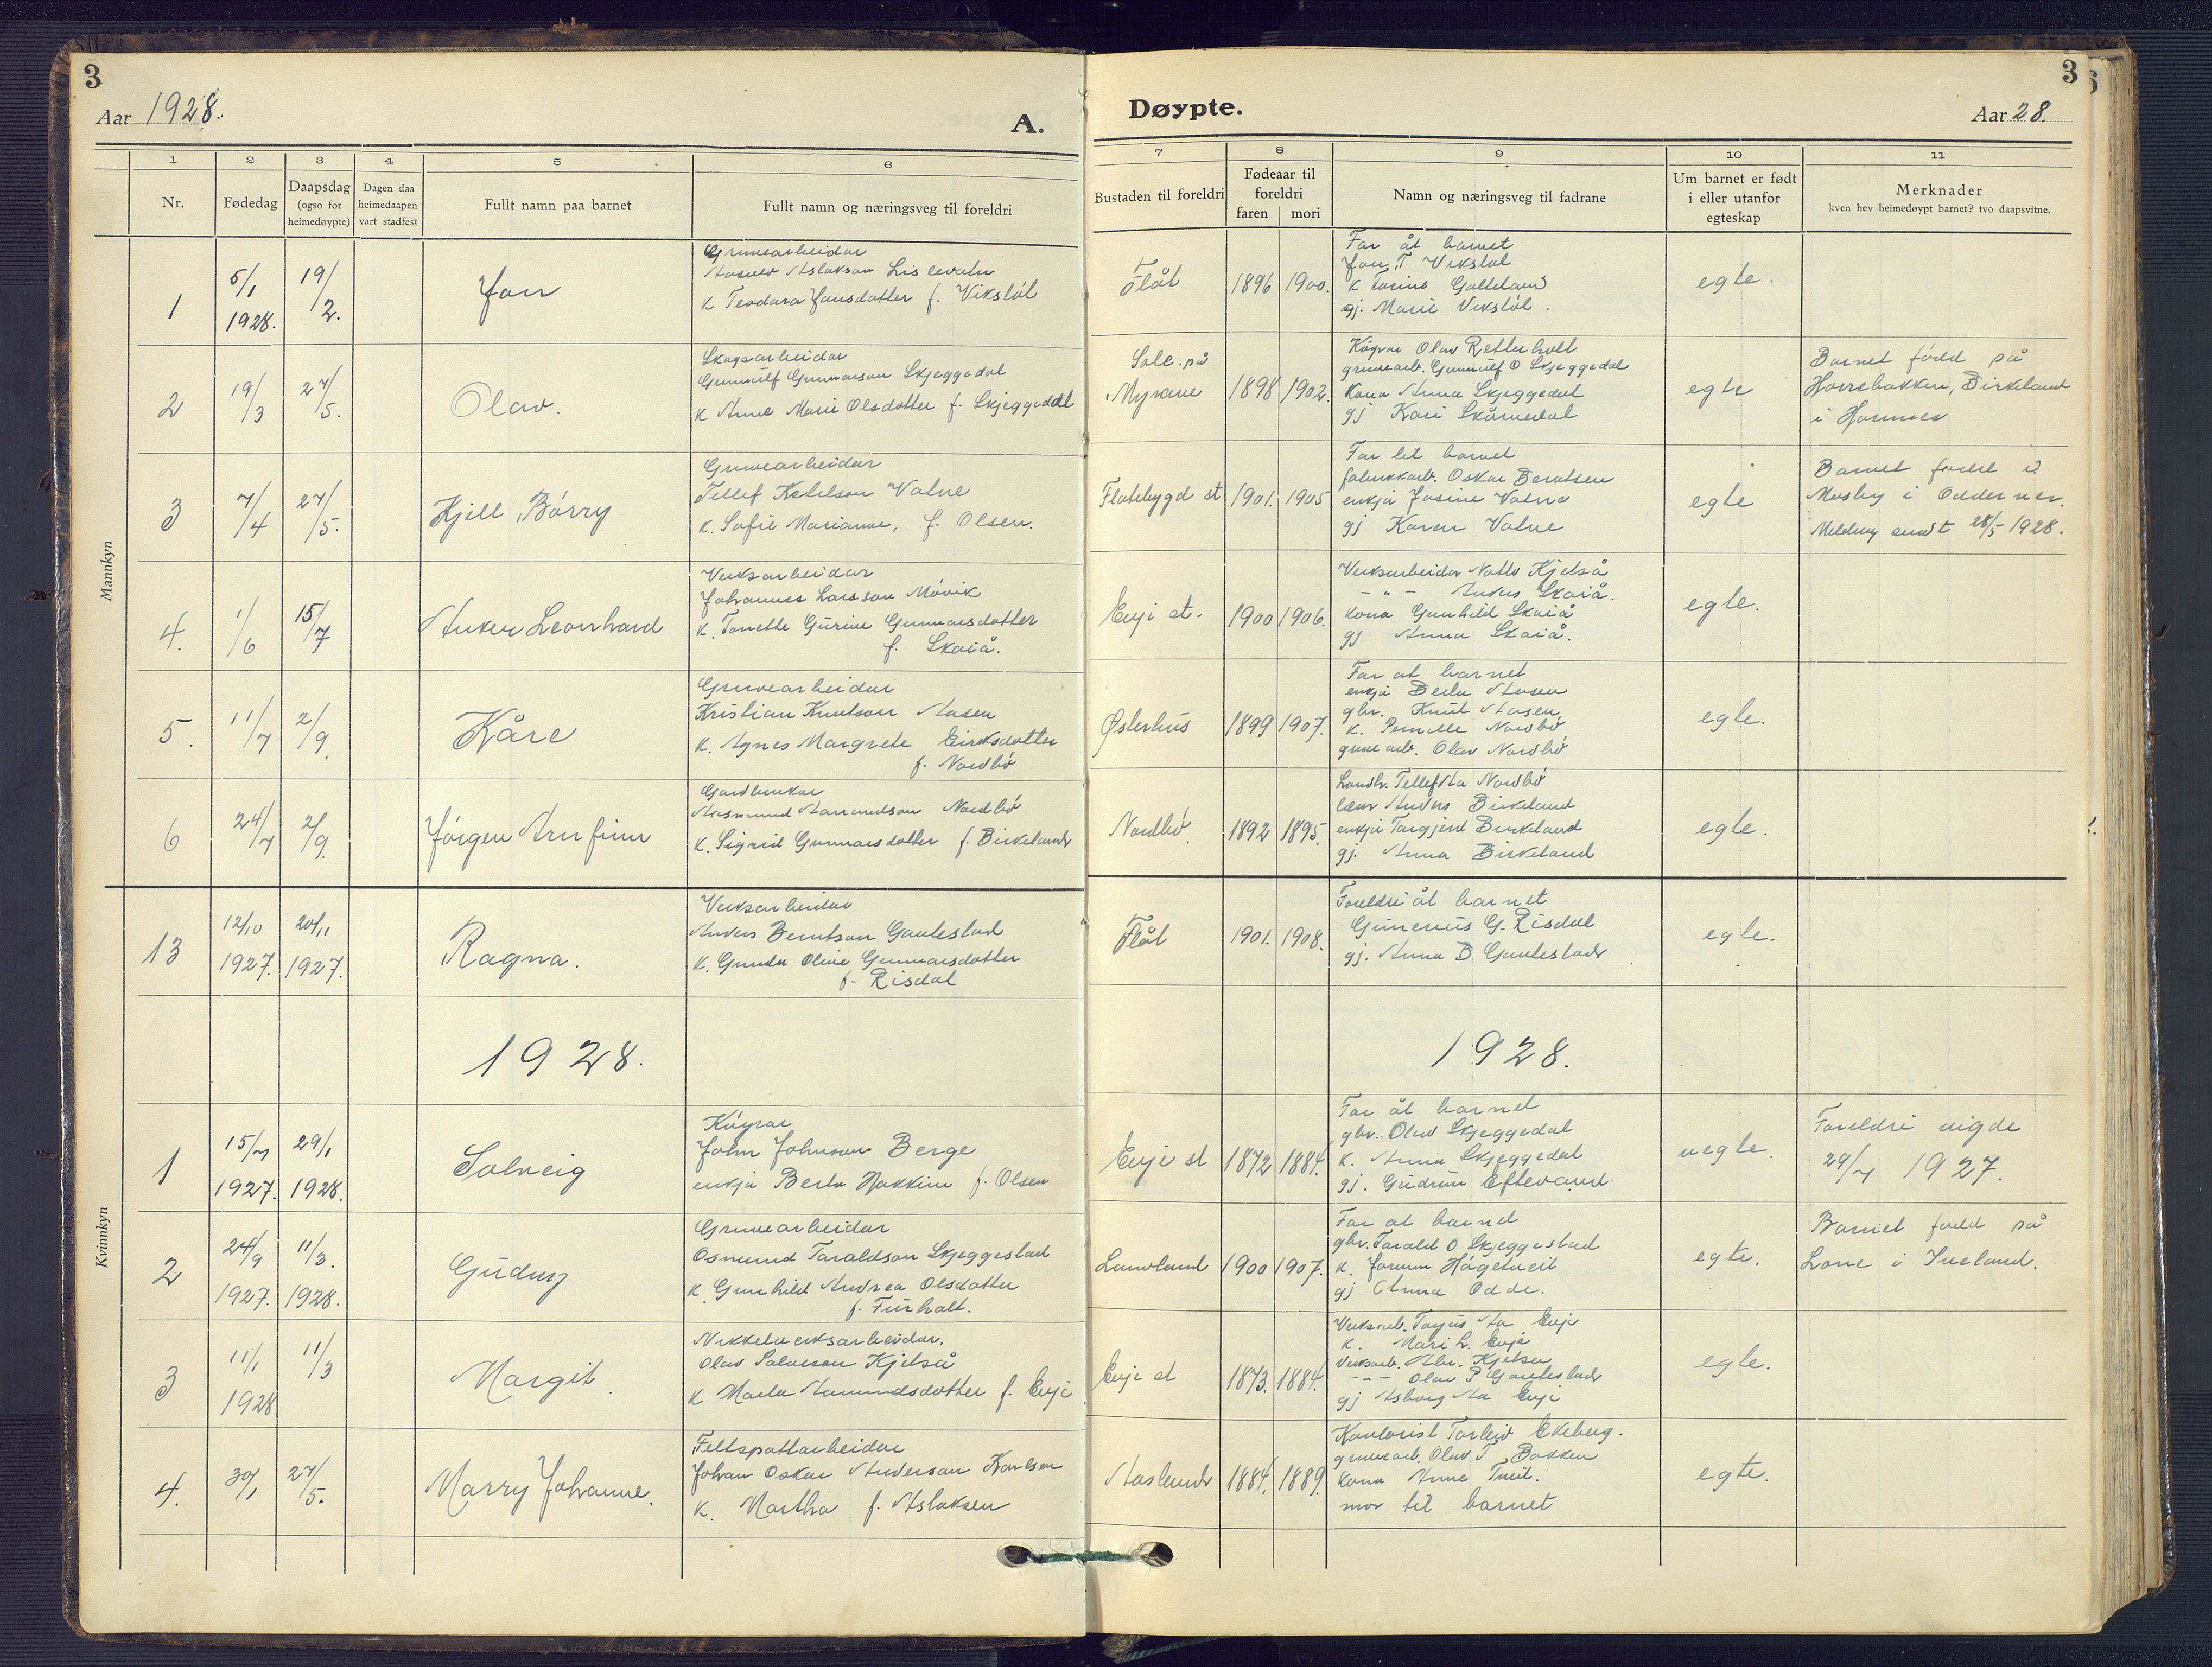 3
Aar 1928.
A.
Døypte.
3
Aar 28.
1 2 3 4 5 6 7 8 9 10 11
Nr.
Fødedag
Daapsdag
(ogso for
heimedøypte)
Dagen daa
heimedaapen
vart stadfest
Fullt namn paa barnet
Fullt namn og næringsveg til foreldri
Bustaden til foreldri
Fødeaar til
foreldri
faren mori
Namn og næringsveg til fadrane
Um barnet er født
i eller utanfor
egteskap
Merknader
kven hev heimedøypt barnet? tvo daapsvitne.
Mannkyn
1
5/1
1928.
19/2.
Jon
Gruvearbeidar
Aslakson Lislevatn
K Teodora Jonsdotter f. Vikstøl
Flåt
1896 1900.
Far åt barnet
Jon T Vikstøl
K Torine Galteland
gj. Marie Vikstøl.
egte.
2
19/3
27/5.
Olav.
Skogsarbeidar
Gunnulf Gunnarson Skjeggedal
K Anne Marie Olsdotter f. Skjeggedal
Sole på
Myrane
1898 1902.
Køyrar Olav Retterholt
gruvearb. Gunnulf O Skjeggedal
Kona Anna Skjeggedal
gj Kari Skåmedal
egte
Barnet fødd på
Horrebakken, Birkeland
i Hornnes
3
7/4
27/5.
Kjell Børry
Gruvearbeidar
Tellef Ketilson Valne
K. Sofie Marianne, f. Olsen.
Flatebygd st
1901. 1905
Far til barnet
fabrikkarb. Oskar Berntsen
enkja Josine Valne
gj Karen Valne
egte
Barnet fødd i
Mosby i Oddernes.
Melding sendt 28/5 1928.
4.
1/6
15/7
Anker Leonhard
Verksarbeidar
Johannes Larsson Møvik
K. Tonette Gurine Gunnarsdotter
f. Skaiå.
Evje st.
1900 1906.
Verksarbeidar Notto Kjetså
- " - Anders Skaiå.
Kona Gunhild Skaiå
gj Anna Skaiå.
egte.
5.
11/7
2/9.
Kåre
Gruvearbeidar
Kristian Knutson Aasen
K. Agnes Margrete Eiriksdotter
f. Nordbø
Østerhus
1899 1907.
Far åt barnet
enkja Berta Aasen
gbr. Knut Aasen
K. Pernille Nordbø
gruvearb. Olav Nordbø
egte.
6
24/7
2/9.
Jørgen Arnfinn
Gardbrukar
Aasmund Aanundson Nordbø
K. Sigrid Gunnarsdotter f. Birkeland
Nordbø
1892 1895.
Landbr. Tellef Aa Nordbø
lærar Anders Birkeland
enkja Targjerd Birkeland
gj. Anna Birkeland
egte.
Kvinnkyn
13
12/10
1927.
20/11
1927.
Ragna.
Verksarbeidar
Anders Berntson Gautestad
K. Gunda Oline Gunnarsdotter
f. Risdal
Flåt
1901. 1908.
Foreldri åt barnet
Gunerius G. Risdal
gj. Anna B Gautestad
egte.
1928.
1928.
1
15/
1927.
29/1
1928.
Solveig
Køyrar
John Johnson Berge
enkja Berta Hakkim f. Olsen
Evje st
1872 1884.
Far åt barnet
gbr. Olav Skjeggedal
K. Anna Skjeggedal
gj. Gudrun Eftevand
uegte.
Foreldri vigde
29/ 1927.
2
24/9
1927.
11/3.
1928.
Gudny
Gruvearbeidar
Osmund Taraldson Skjeggestad
K. Gunhild Andrea Olsdotter
f. Furholt.
Lauvland
1900 1907.
Far åt barnet
gbr. Tarald O Skjeggestad
K. Høgetveit
gj Anna Odde.
egte.
Barnet fødd på
Lone i Iveland.
3
11/1
1928
11/3
Margit.
Nikkelverksarbeidar.
Olav Salveson Kjetså
K Marta Aanundsdotter f. Evje
Evje st
1873. 1884.
Verksarb. Torjus Aa Evje
K. Mari L. Evje
Verksarb. Abr. Kjetså
- " - Olav P Gautestad
gj Asborg Aa Evje
egte.
4.
30/1
27/5.
Marry Johanne.
Feltspatarbeidar
Johan Oskar Anderson Karlsen
K. Martha f. Aslaksen
Aasland
1884. 1889.
Kontorist Torleiv Ekeberg.
gruvearb. Olav T Bakken
Kona Anne Tveit.
mor til barnet
egte.